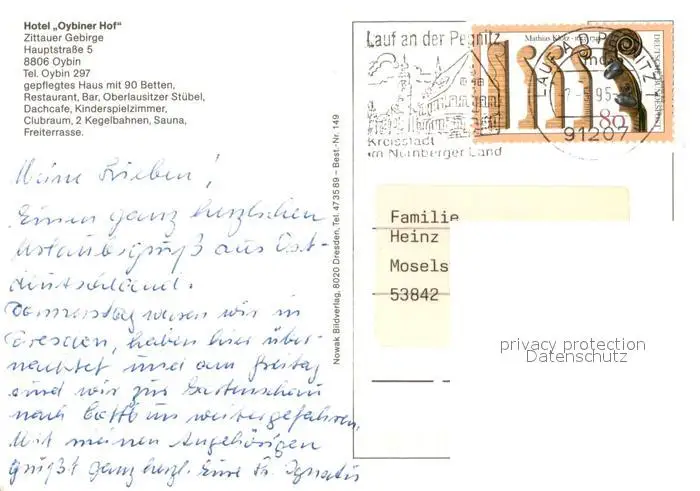 Hotel „Oybiner Hof“
Zittauer Gebirge
Hauptstraße 5
8806 Oybin
Tel. Oybin 297
gepflegtes Haus mit 90 Betten,
Restaurant, Bar, Oberlausitzer Stübel,
Dachcafe, Kinderspielzimmer,
Clubraum, 2 Kegelbahnen, Sauna,
Freiterrasse.
Meine Lieben!
Einen ganz herzlichen
Urlaubsgruß aus Ost-
deutschland.
Donnerstag waren wir in
Dresden, haben hier über-
nachtet und am Freitag
sind wir zur Gartenschau
nach Cottbus weitergefahren.
Mit meinen Angehörigen
grüßt ganz herzl. Eure Fr. Ignatis
Nowak Bildverlag, 8020 Dresden, Tel. 473589 – Best.-Nr. 149
Lauf an der Pegnitz
Kreisstadt
im Nürnberger Land
Mathias Klotz
80
LAUF A D PEGNITZ
95
91207
Familie
Heinz
Mosels
53842
privacy protection
Datenschutz